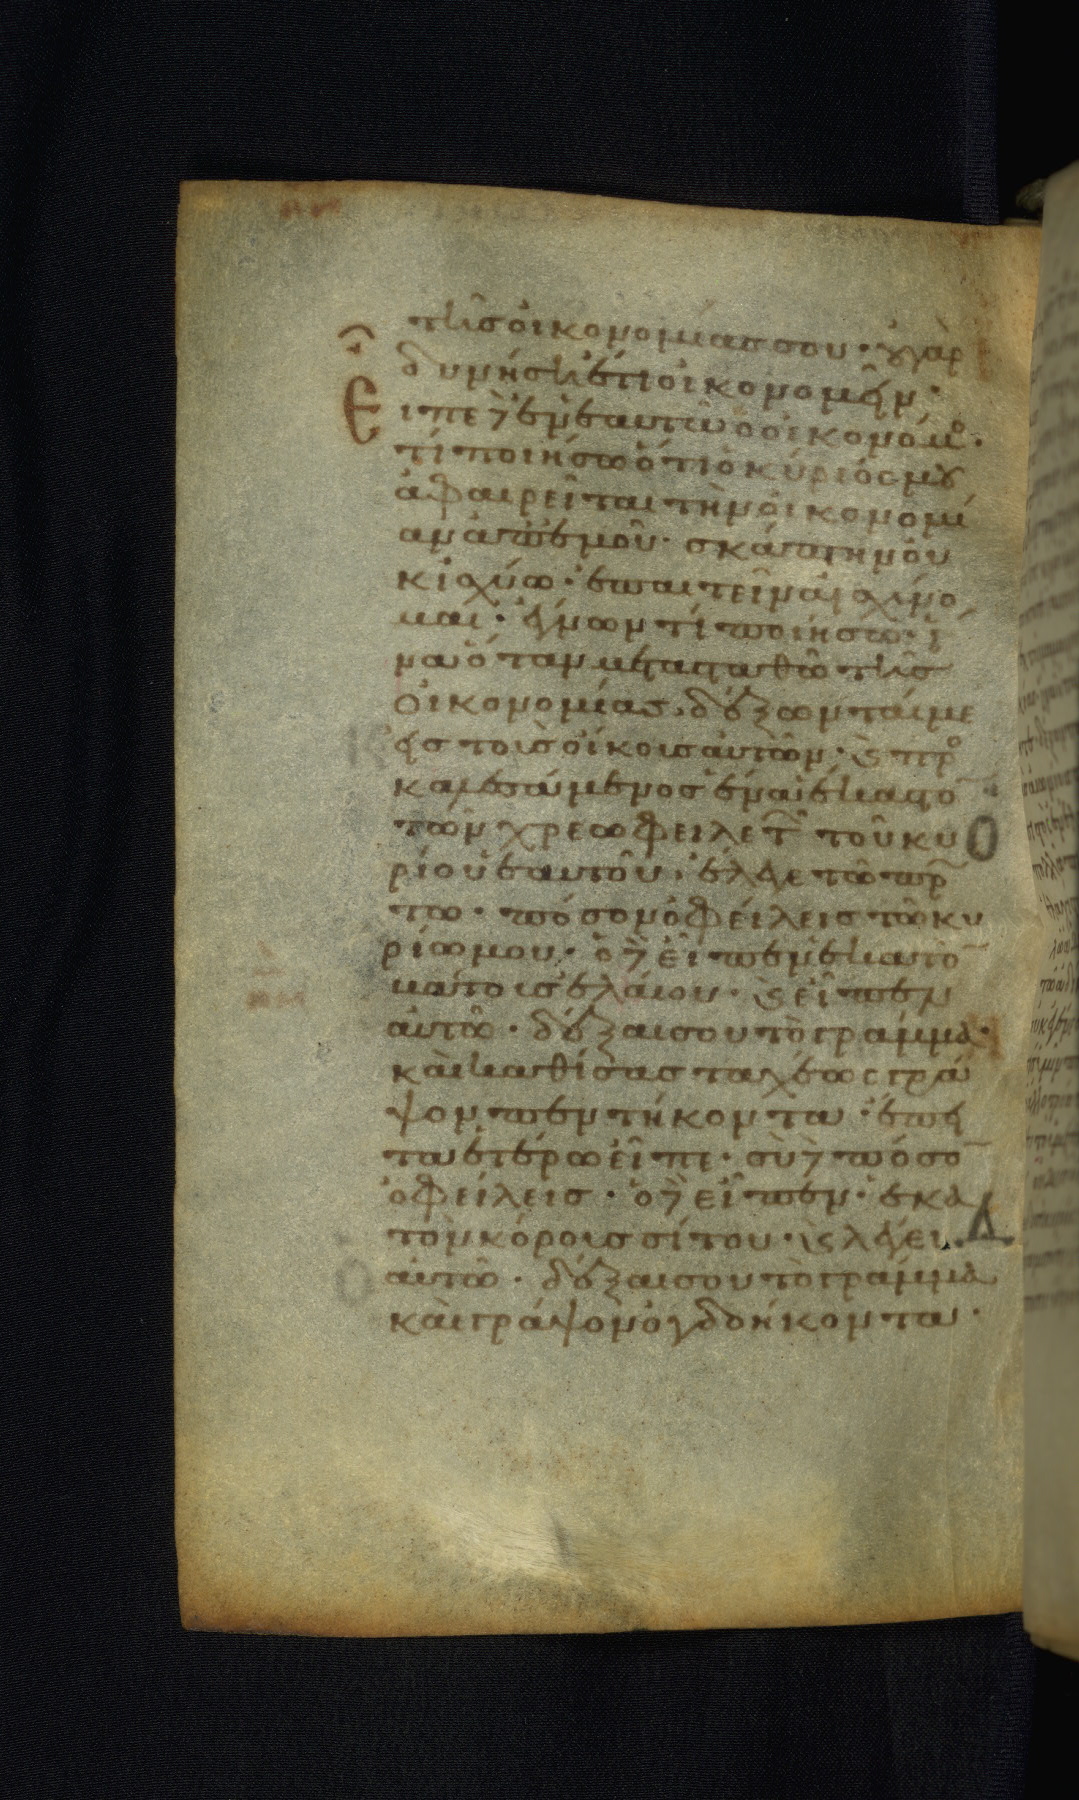 τῆς οἰκονομίας σου· οὐ γὰρ
δυνήσῃ ἔτι οἰκονομεῖν·
Εἶπε δὲ ἐν ἑαυτῶ ὁ οἰκονόμο·
τί ποιήσω ὅτι ὁ κύριός μου
ἀφαιρεῖται τὴν οἰκονομί
αν ἀπ' ἐμοῦ· σκάπτειν οὐ
κ ἰσχύω· ἐπαιτεῖν αἰσχύνο
μαι· ἔγνων τί ποιήσω· ἵ
να ὅταν μετασταθῶ τῆς
οἰκονομίας, δέξωνταί με
εἰς τοὺς οἴκους αὐτῶν· ϗ προ
καλεσάμενος ἕνα ἕκαστο
τῶν χρεωφειλετ τοῦ κυ
ρίου ἑαυτοῦ· ἔλεγε τῶ πρ
τω· πόσον ὀφείλεις τῶ κυ
ρίω μου· ὁ δὲ εἶπεν ἑκατὸ
βάτους ἐλαίου· ϗ εἶπεν
αὐτῶ· δέξαι σου τὸ γράμμα·
καὶ καθίσας ταχέως γρά
ψον πεντήκοντα· ἔπει
τα ἑτέρω εἶπε· σὺ δὲ πόσο
ὀφείλεις· ὁ δὲ εἶπεν· ἑκα
τὸν κόρους σίτου· ϗ λέγει
αὐτῶ· δέξαι σου τὸ γράμμα
καὶ γράψον ὀγδοήκοντα·